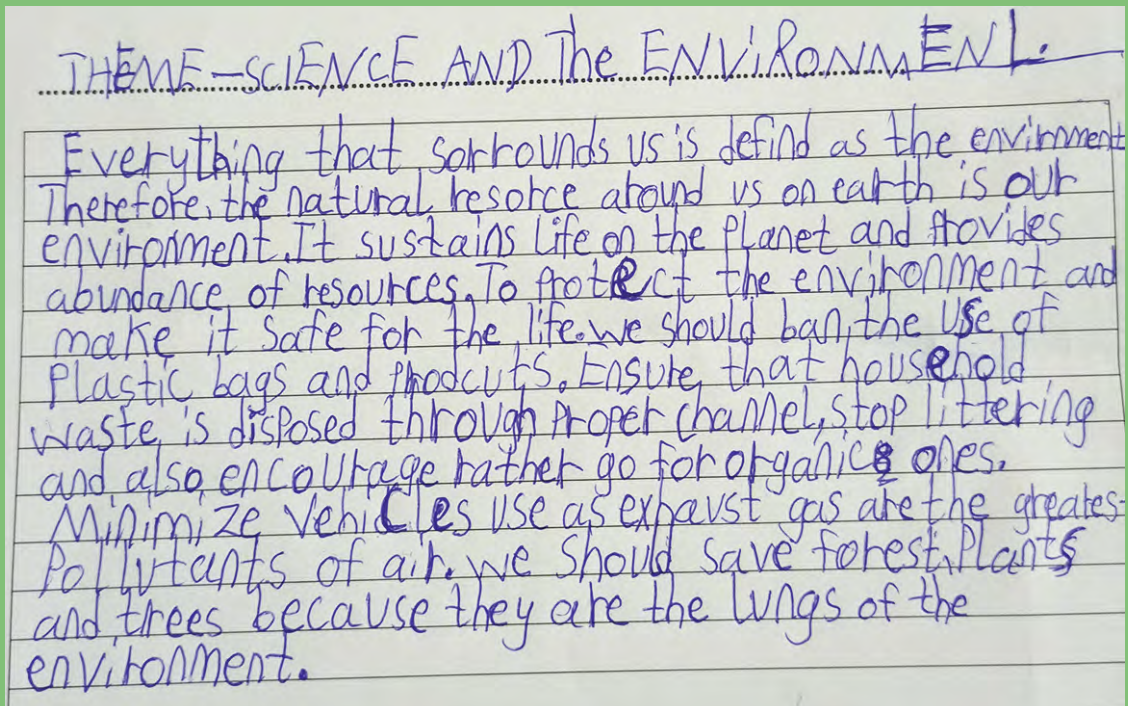 THEME-SCIENCE AND The ENViRONMENT.
Everything that sorrounds us is defind as the envirnment
Therefore, the natural resorce around us on earth is our
environment. It sustains life on the Planet and Provides
abundance of resources. To protect the environment and
make it safe for the life. we should ban, the use of
Plastic bags and Prodcuts. Ensure that household
waste is disposed through Proper channel, stop littering
and also encourage rather go for organics ones.
Minimize Vehicles use as exhaust gas are the greates-
Pollutants of air. we should save forest, Plants
and trees because they are the lungs of the
environment.